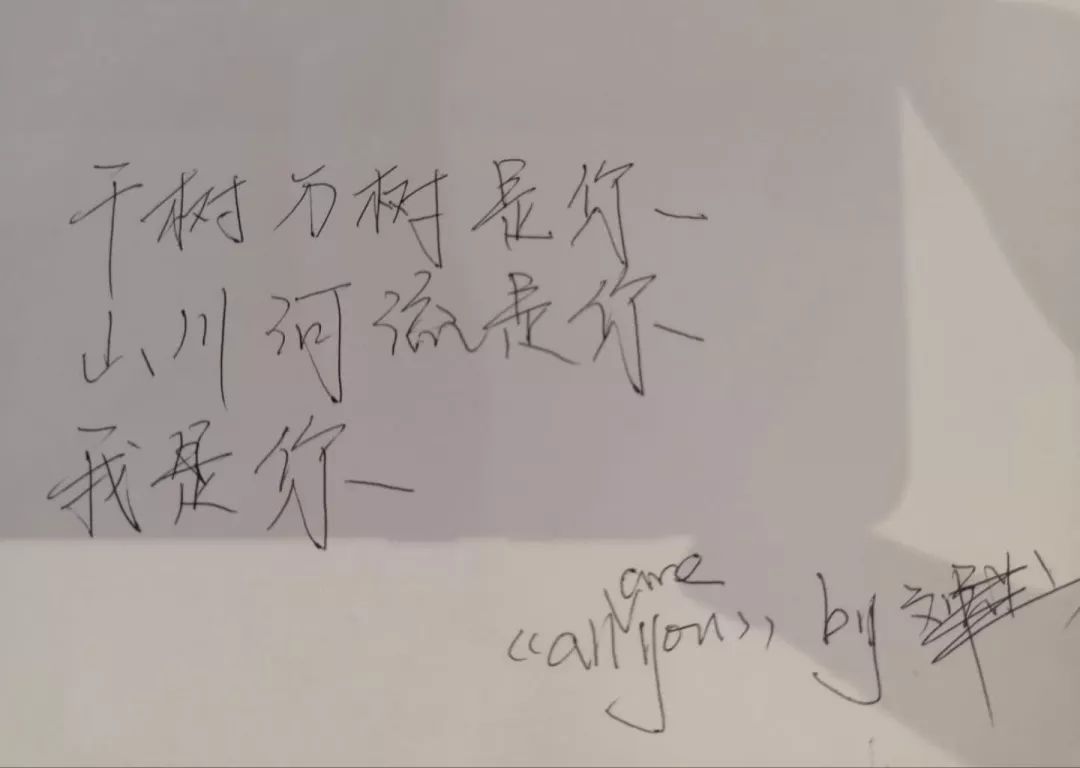 千树万树是你、
山川河流是你、
我是你、
《all are you》 by